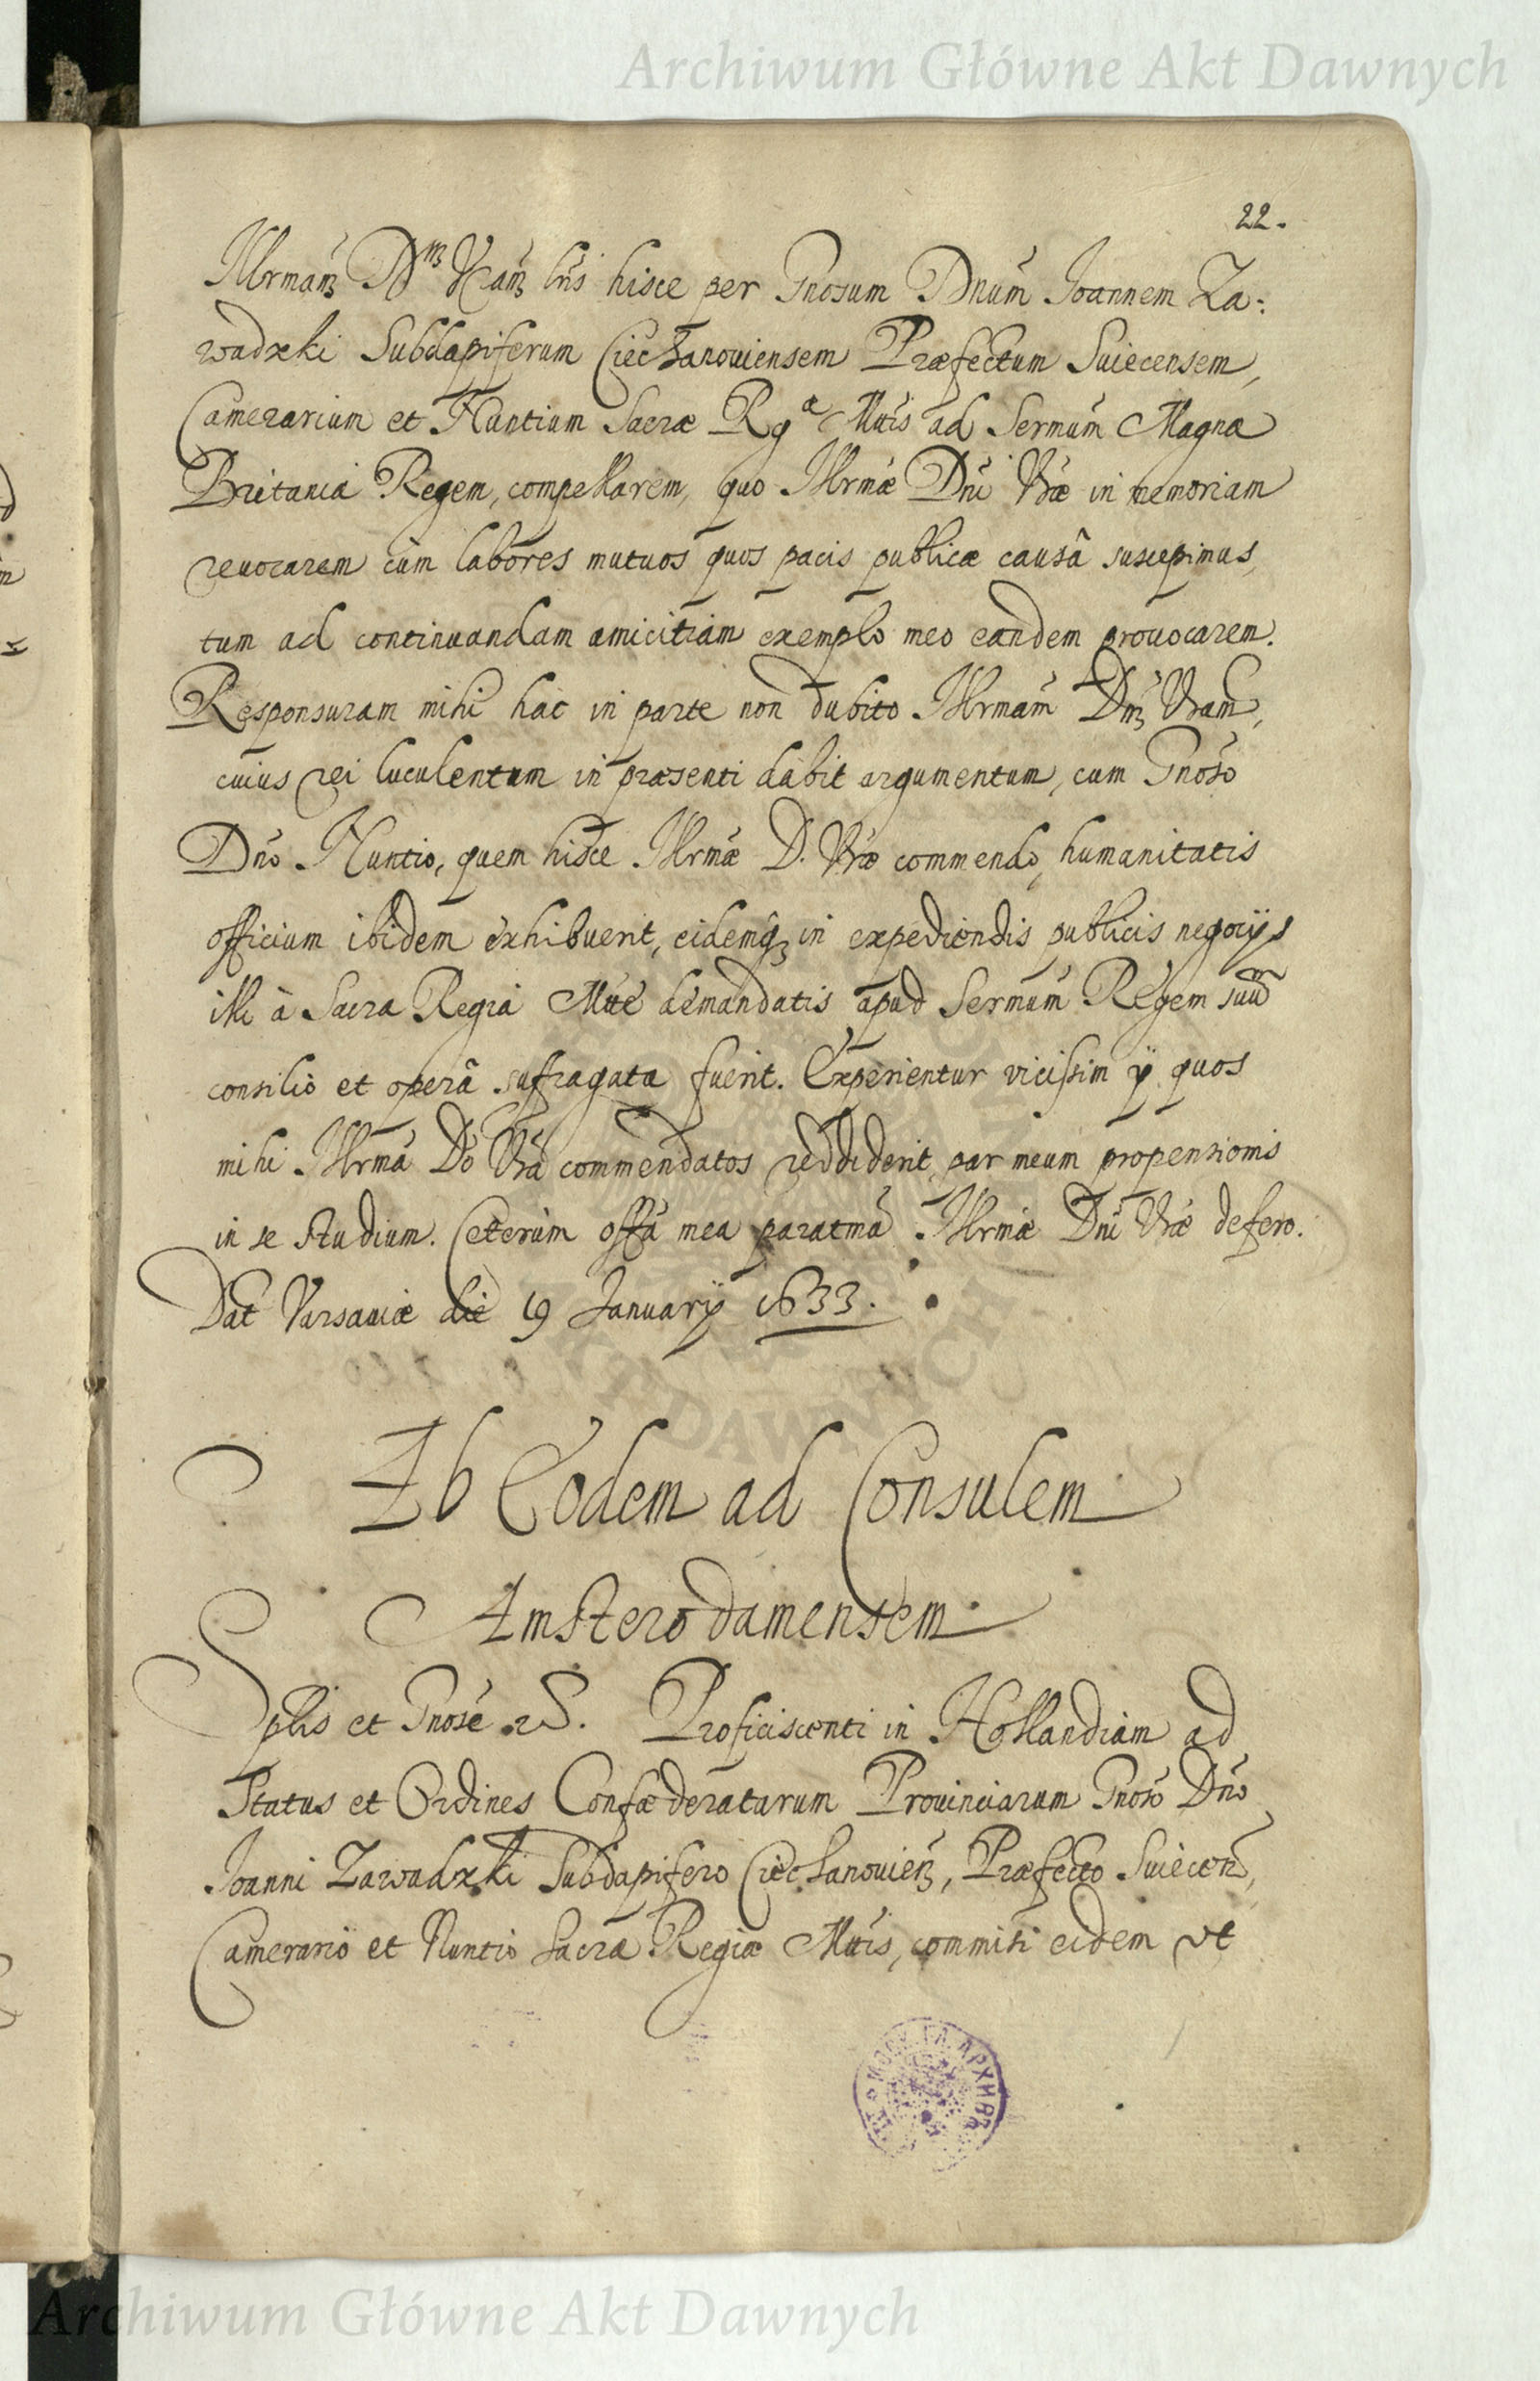 Archiwum Główne Akt Dawnych
22.
Illrmam Dm Vram lris hisce per Gnosum Dnum Joannem Za:
wadzki Subdapiferum Ciechanouiensem Præfectum Suiecensem,
Camerarium et Nuntium Sacræ Rgæ Mttis ad Sermum Magnæ
Britaniæ Regem, compellarem, quo Illrmæ Dni Vræ in memoriam
reuocarem cùm labores mutuos quos pacis publicæ causâ suscepimus,
tum ad continuandam amicitiam exemplo meo eandem prouocarem.
Responsuram mihi hac in parte non dubito Illrmam Dm Vram,
cuius rei luculentum in præsenti dabit argumentum, cum Gnoso
Dno Nuntio, quem hisce Illrmæ D. Vræ commendo, humanitatis
officium ibidem exhibuerit, eidemq in expediendis publicis negocijs
illi à Sacra Regia Mtte demandatis apud Sermum Regem suu
consilio et operâ suffragata fuerit. Experientur vicissim ij quos
mihi Illrma Do Vra commendatos reddiderit par meum propensionis
in se studium. Ceterùm offa mea paratma Illrmæ Dni Vræ defero.
Dat Varsauiæ die 19 Januarij 1633.
Ab Eodem ad Consulem
Amsterodamensem
Splis et Gnose D. Proficiscenti in Hollandiam ad
Status et Ordines Confæderatarum Prouinciarum Gnoso Dno
Joanni Zawadzki Subdapifero Ciechanouien, Præfecto Suiecen,
Camerario et Nuntio Sacræ Regiæ Mttis, commisi eidem vt
Archiwum Główne Akt Dawnych